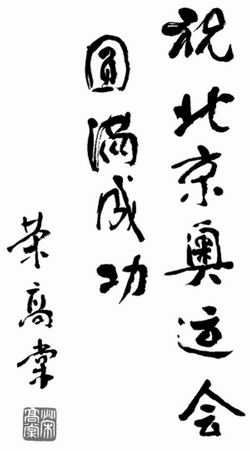 祝北京奥运会
圆满成功
荣高棠
荣高棠